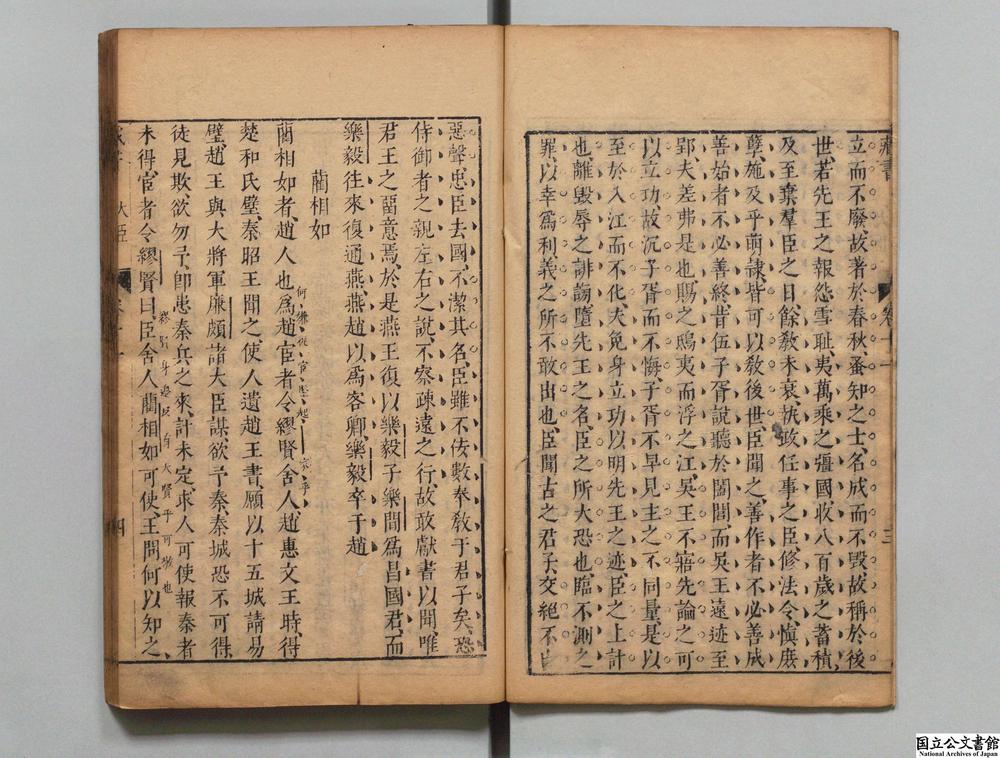 藏書 卷十一 三
立而不廢故著於春秋蚤知之士名成而不毀故稱於後
世若先王之報怨雪耻夷萬乘之彊國收八百歲之蓄積
及至棄羣臣之日餘敎未衰執政任事之臣修法令愼庶
孽施及乎萌隷皆可以敎後世臣聞之善作者不必善成
善始者不必善終昔伍子胥說聽於闔閭而吳王遠迹至
郢夫差弗是也賜之鴟夷而浮之江吳王不寤先論之可
以立功故沉子胥而不悔子胥不早見主之不同量是以
至於入江而不化夫免身立功以明先王之迹臣之上計
也離毀辱之誹謗墮先王之名臣之所大恐也臨不測之
罪以幸爲利義之所不敢出也臣聞古之君子交絕不
惡聲忠臣去國不潔其名臣雖不佞數奉敎于君子矣恐
侍御者之親左右之說不察疎遠之行故敢獻書以聞唯
君王之留意焉於是燕王復以樂毅子樂間爲昌國君而
樂毅往來復通燕燕趙以爲客卿樂毅卒于趙
藺相如
藺相如者趙人也爲趙宦者令繆賢舍人趙惠文王時得
楚和氏璧秦昭王聞之使人遺趙王書願以十五城請易
璧趙王與大將軍廉頗諸大臣謀欲予秦秦城恐不可得
徒見欺欲勿予卽患秦兵之來計未定求人可使報秦者
未得宦者令繆賢曰臣舍人藺相如可使王問何以知之
大臣 四
国立公文書館
National Archives of Japan